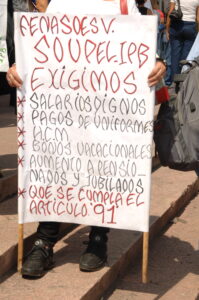 FENASOESV.
SOUDELIPB
EXIGIMOS
* SALARIOS DIGNOS
PAGOS DE UNIFORMES
H.C.M
* BONOS VACACIONALES
* AUMENTO A PENSIO-
NADOS Y JUBILADOS
* QUE SE CUMPLA EL
ARTICULO "91